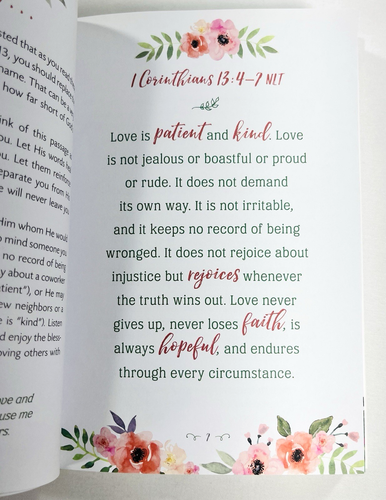 sted that as you read
13, you should repl
name. That can be a
how far short of Go
ink of this passage
ou. Let His words
ou. Let them reinfor
eparate you from H
e will never leave yo
Him whom He would
o mind someone you
no record of being
y about a coworker
tient"), or He may
ew neighbors or a
e is "kind"). Listen
d enjoy the bless-
oving others with
ove and
use me
rs.
1 Corinthians 13:4–7 NLT
Love is patient and kind. Love
is not jealous or boastful or proud
or rude. It does not demand
its own way. It is not irritable,
and it keeps no record of being
wronged. It does not rejoice about
injustice but rejoices whenever
the truth wins out. Love never
gives up, never loses faith, is
always hopeful, and endures
through every circumstance.
7